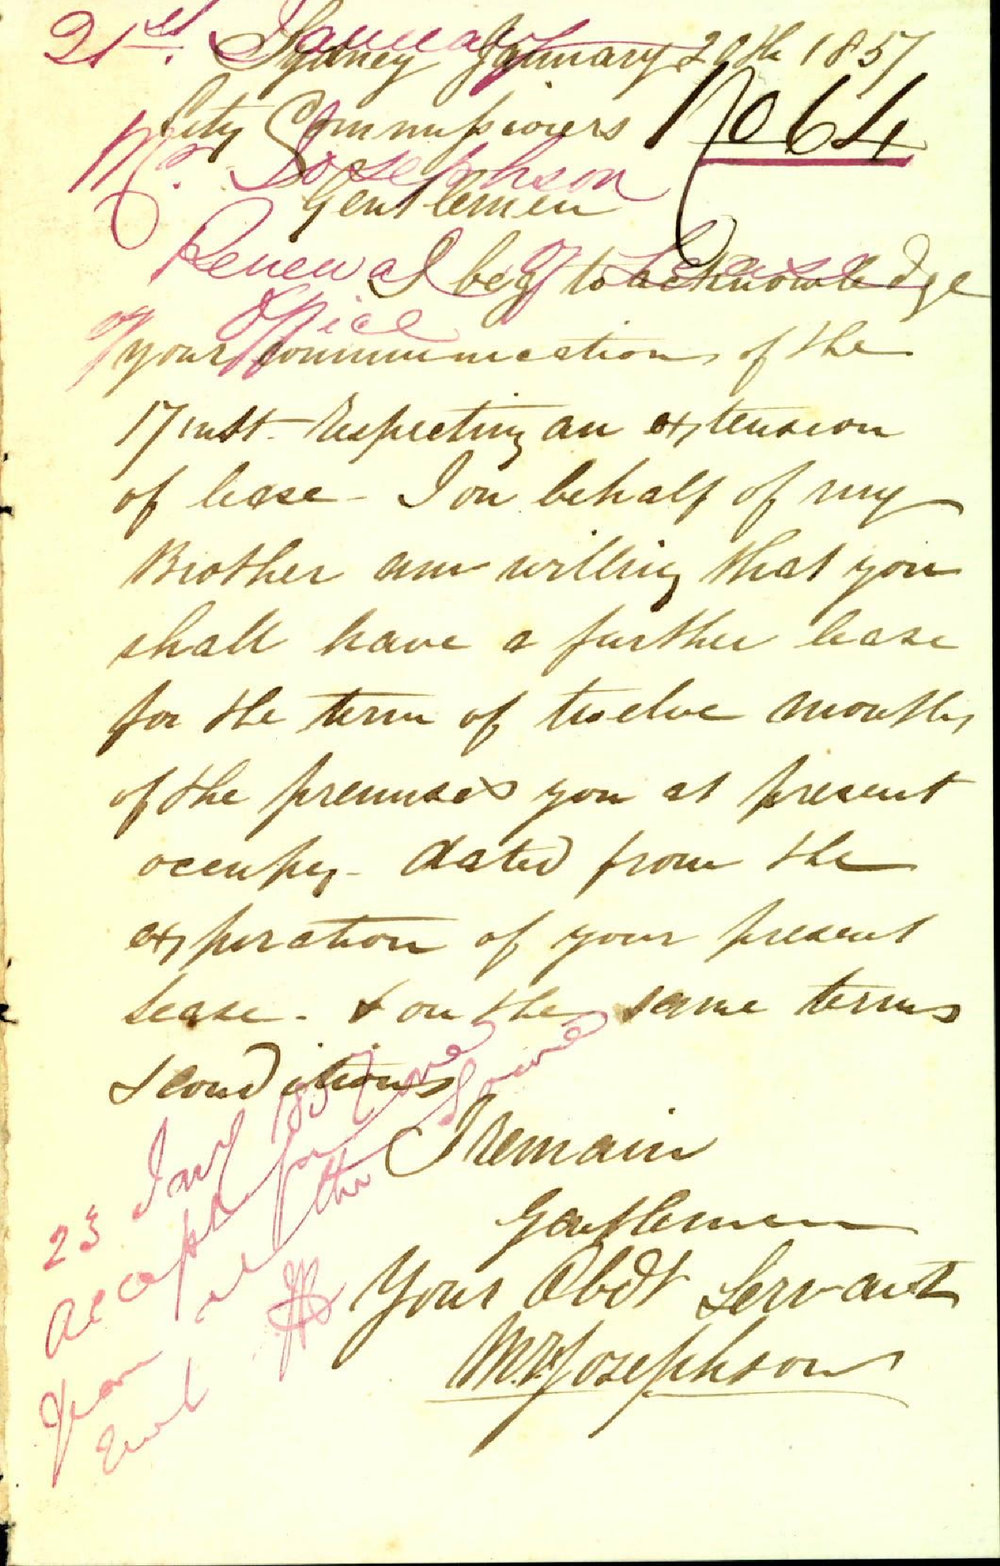 21st. January
Sydney January 20th 1857
No 64
City Commissioners
Mr. Josephson
Gentlemen
Renewal of Lease
of Office
I beg to acknowledge
your communication of the
17 inst. respecting an extension
of lease - I on behalf of my
Brother am willing that you
shall have a further lease
for the term of twelve months
of the premises you at present
occupy - dated from the
expiration of your present
lease - & on the same terms
& conditions
I remain
Gentlemen
Your Obdt Servant
M. Josephson
23 Jany 1857
Accept for one
year at the same